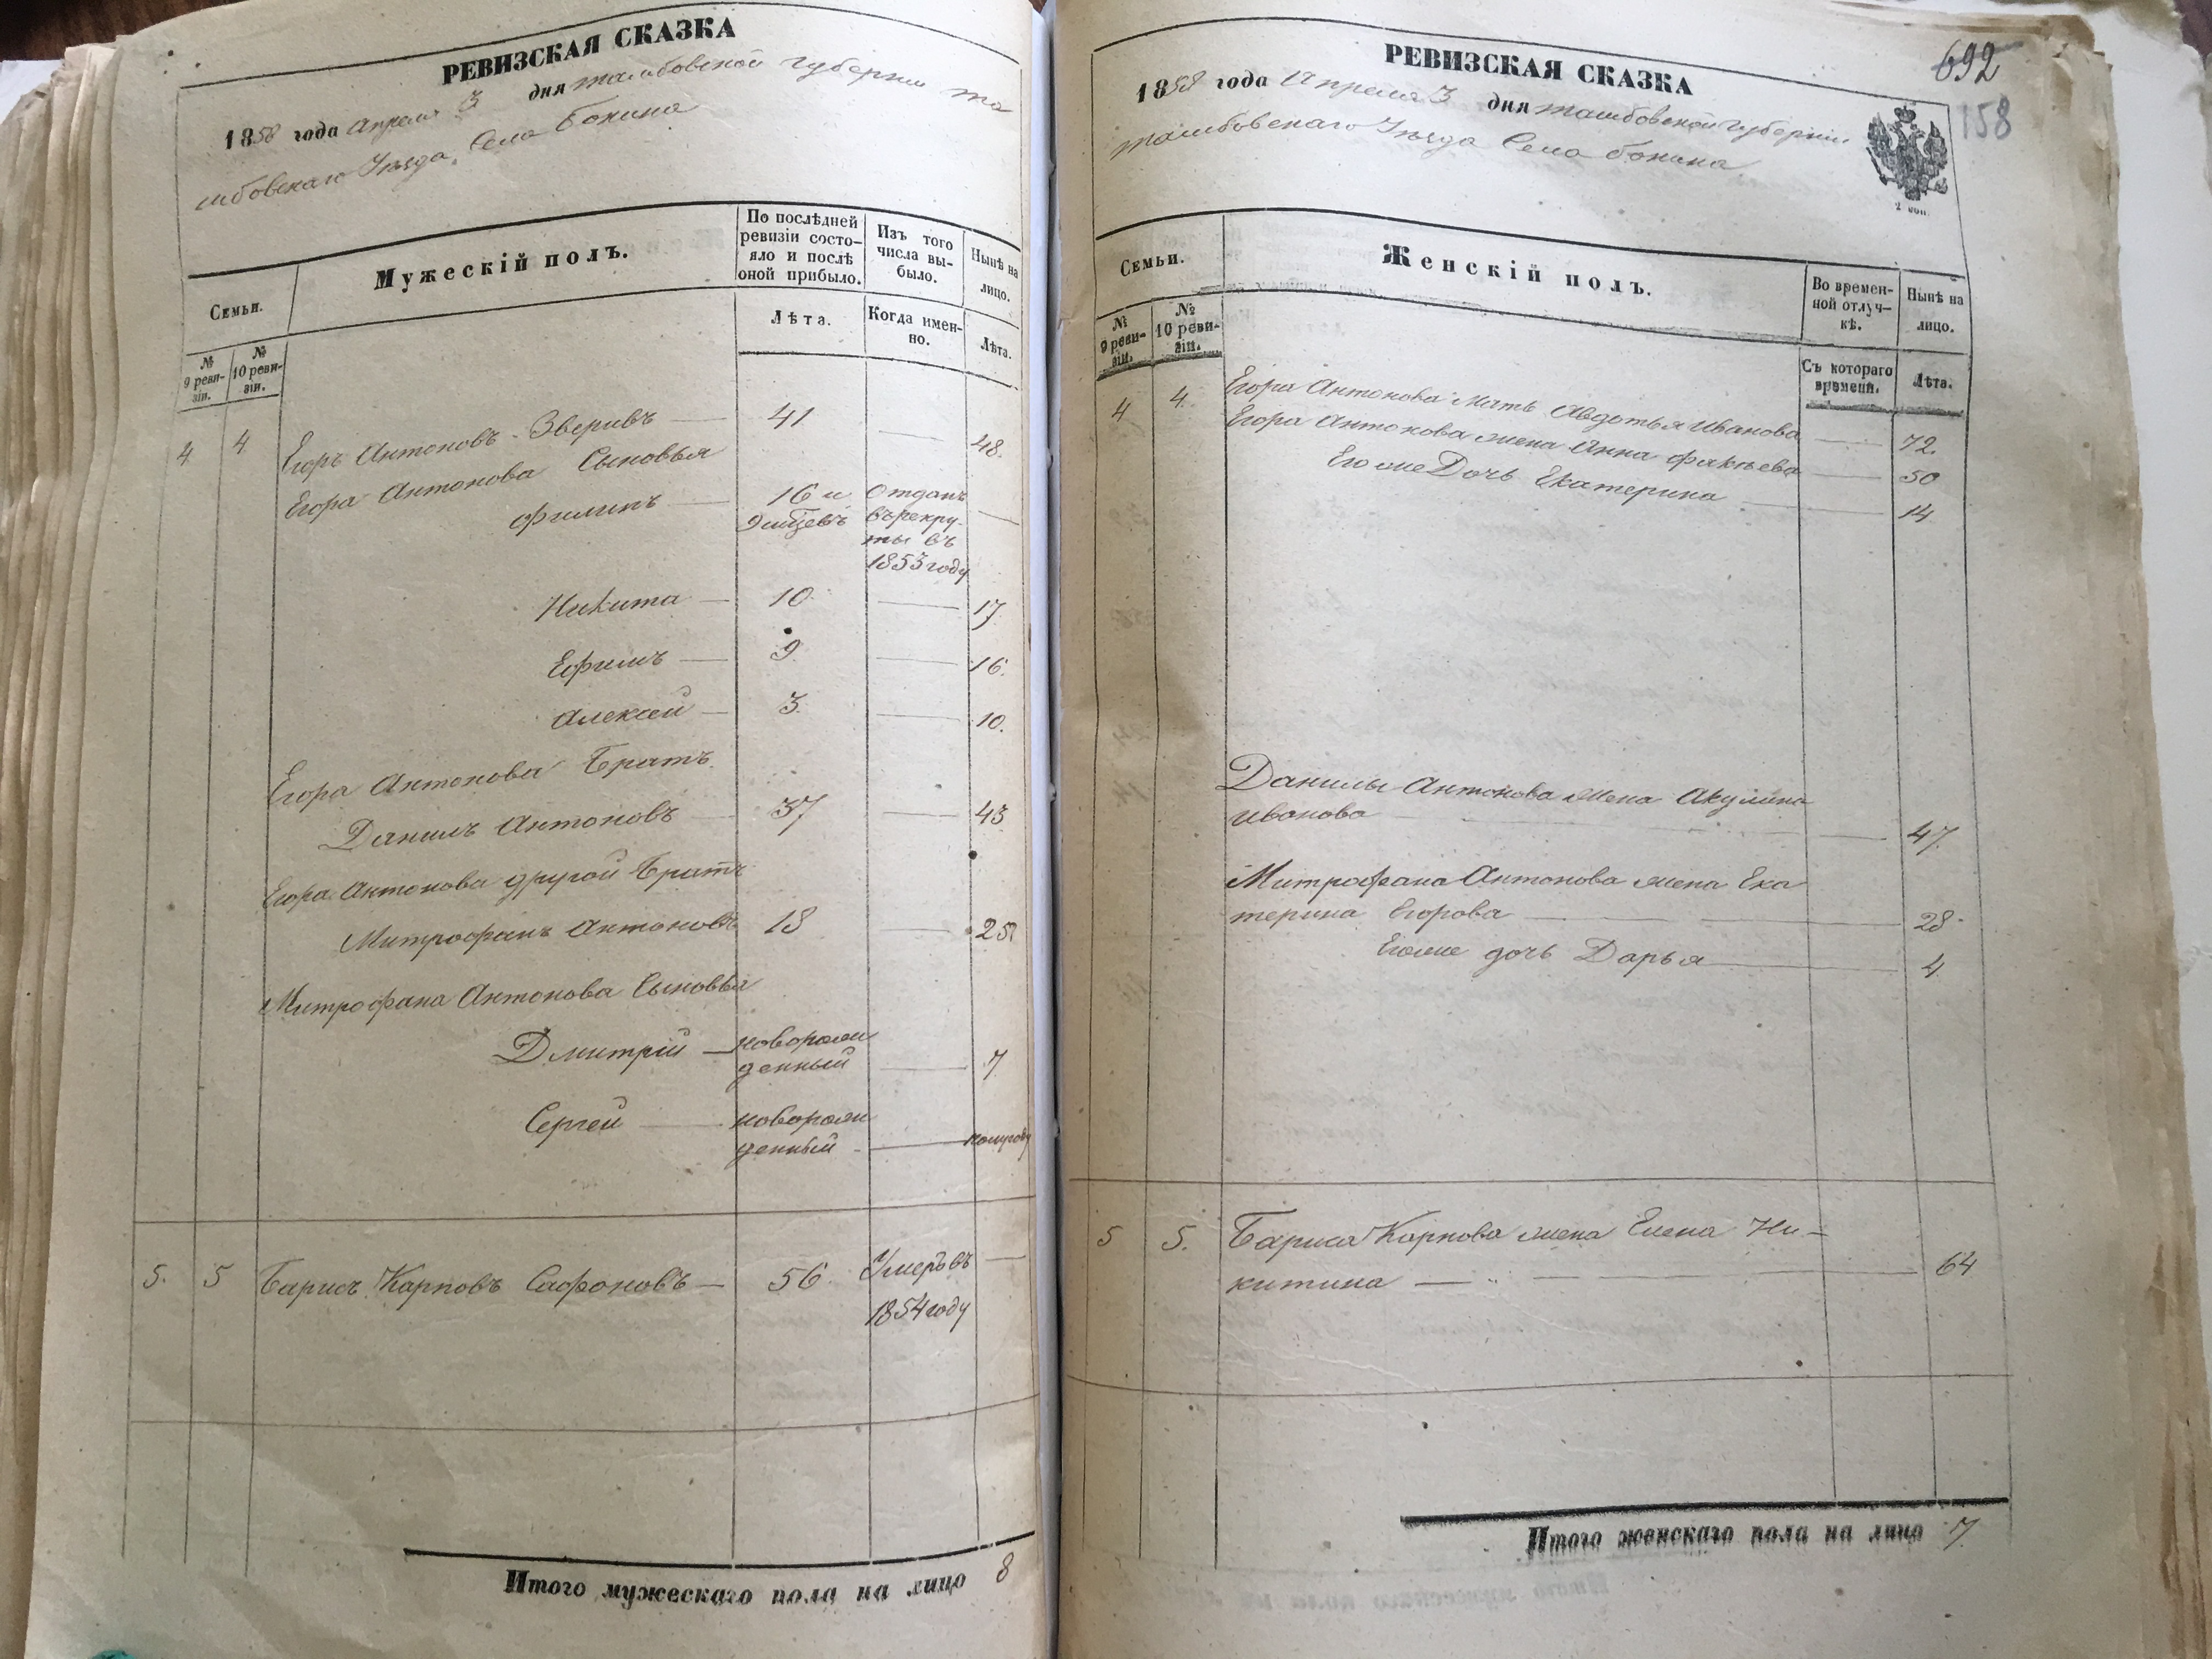 РЕВИЗСКАЯ СКАЗКА
1858 года Апреля 3 дня Тамбовской губернии Та
мбовскаго Уѣзда, Села Бокина
Семьи.
Мужескій полъ.
По послѣдней ревизіи состо-
яло и послѣ оной прибыло.
Изъ того числа вы-
было.
Нынѣ на лицо.
№ 9 реви-
зіи.
№ 10 реви-
зіи.
Лѣта.
Когда имен-
но.
Лѣта.
4 4 Егоръ Антоновъ Зверивъ 41 48
Егора Антонова Сыновья
Филипъ 16 и Отданъ
9 мцевъ въ рекру-
ты въ
1853 году
Никита 10 17
Ефимъ 9 16
Алексей 3 10
Егора Антонова Братъ
Данилъ Антоновъ 37 43
Егора Антонова другой Братъ
Митрофанъ Антоновъ 18 25
Митрофана Антонова Сыновья
Дмитрій новорож
денный 7
Сергей новорож
денный полугоду
5. 5 Барисъ Карповъ Сафоновъ 56 Умеръ въ
1854 году
Итого мужескаго пола на лицо 8
692
158
РЕВИЗСКАЯ СКАЗКА
1858 года Апреля 3 дня Тамбовской Губерніи
Тамбовскаго Уѣзда Села Бокина
2 коп.
Семьи.
Женскій полъ.
Во времен-
ной отлуч-
кѣ.
Нынѣ на лицо.
№ 9 реви-
зіи.
№ 10 реви-
зіи.
Съ котораго времени.
Лѣта.
4 4 Егора Антонова мать Авдотья Иванова 72.
Егора Антонова жена Анна Факѣева 50
Его же Дочь Екатерина 14
Данилы Антонова жена Акулина
Иванова 47
Митрофана Антонова жена Ека
терина Егорова 28
Его же дочь Дарья 4
5 5. Бариса Карпова жена Елена Ни-
китина 64
Итого женскаго пола на лицо 7